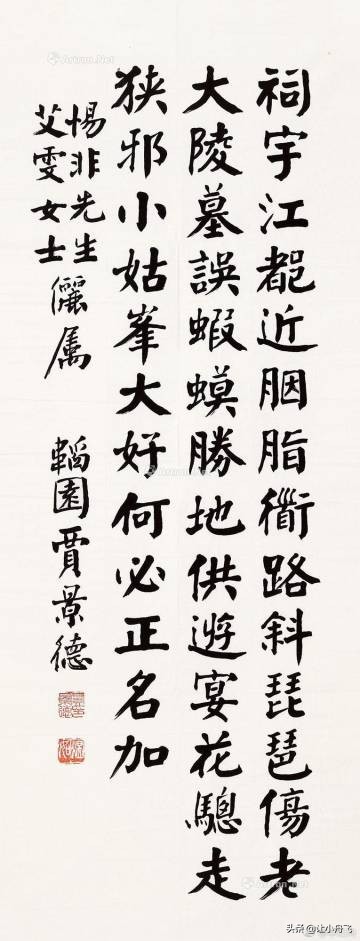 祠宇江都近胭脂衖路斜琵琶傷老
大陵墓誤蝦蟆勝地供遊宴花驄走
狹邪小姑峯大好何必正名加
惕非先生
艾雯女士
儷属 韜園賈景德
Artron.Net
头条 @让小丹飞